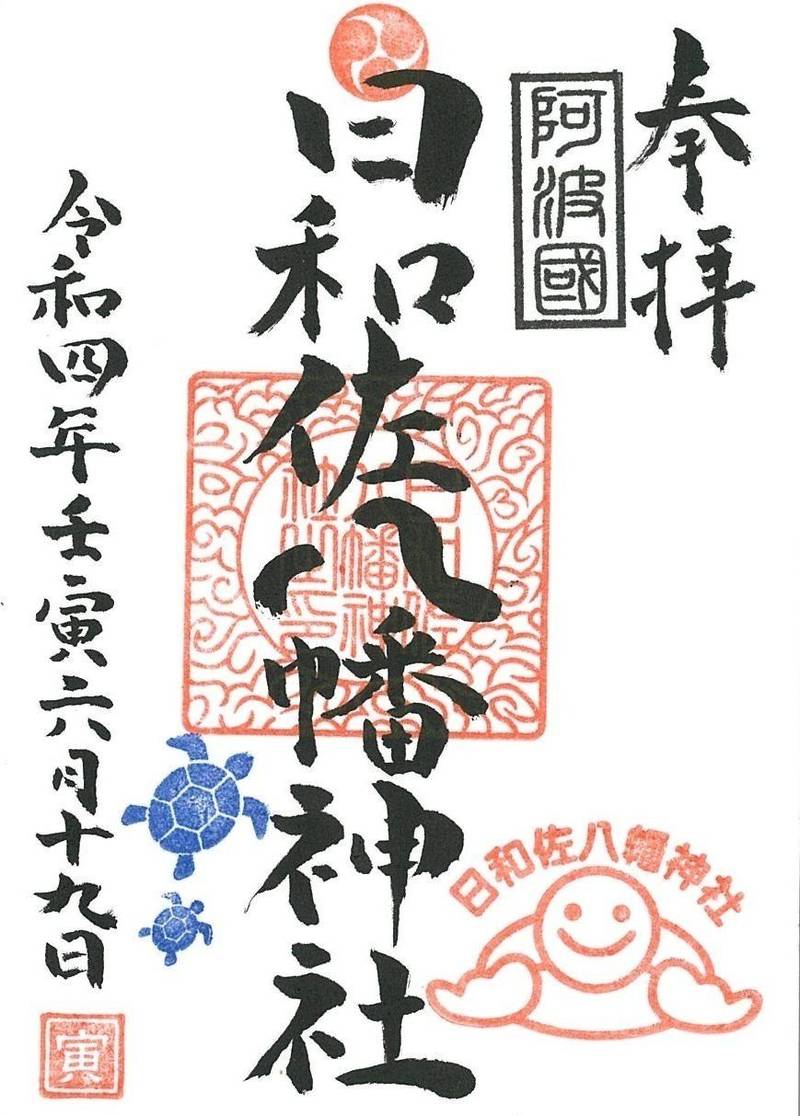 奉拝
阿波國
日和佐八幡神社
日和佐八幡神社之印
日和佐八幡神社
令和四年壬寅六月十九日
寅